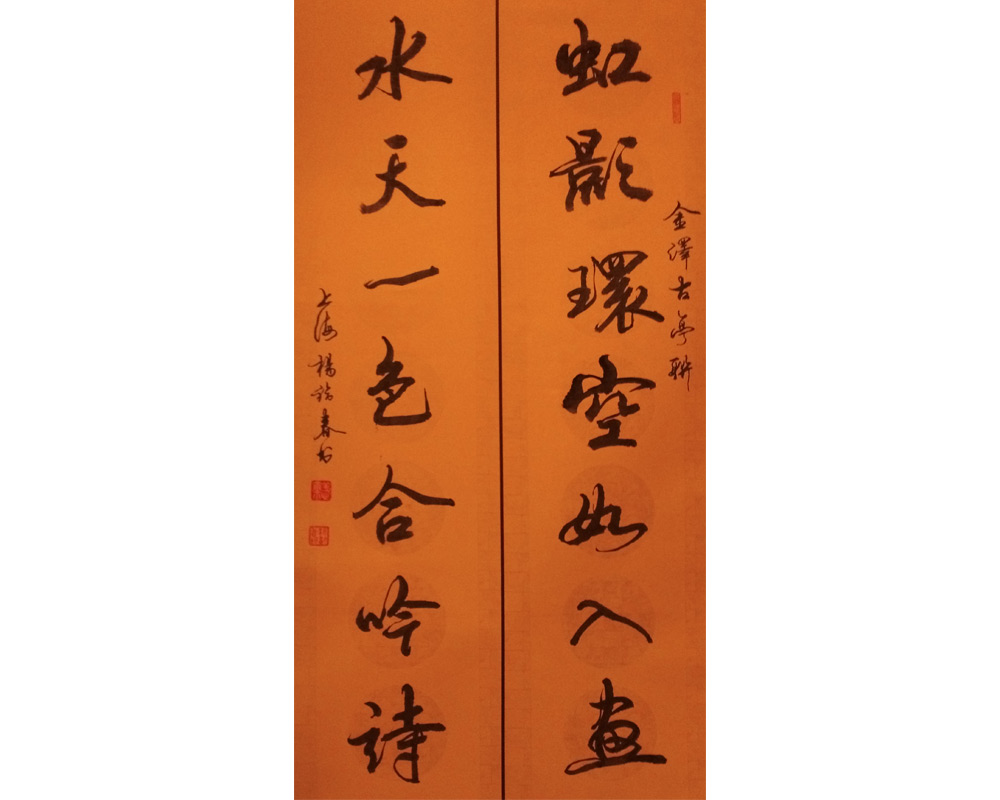 金澤古亭聯
虹影環空如入畫
水天一色合吟詩
上海楊錦春书